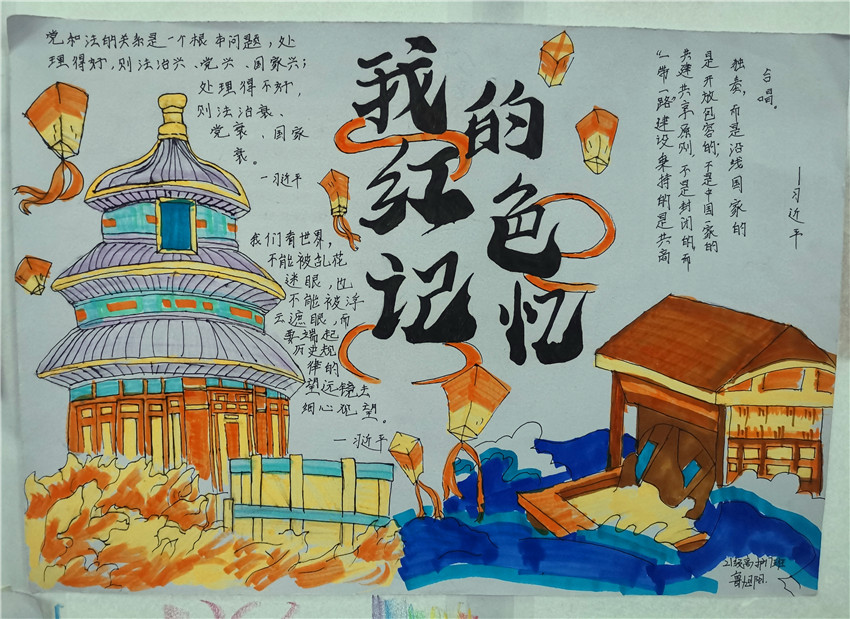 党和法的关系是一个根本问题,处
理得好,则法治兴、党兴、国家兴;
处理得不好,
则法治衰、
党衰、国家
衰。
—习近平
我的
红色
记忆
“一带一路”建设秉持的是共商
共建共享原则,不是封闭的而
是开放包容的;不是中国一家的
独奏,而是沿线国家的
合唱。
—习近平
我们有世界,
不能被乱花
迷眼,也
不能被浮
云遮眼,而
要端起
历史规
律的
望远镜去
细心 望。
—习近平